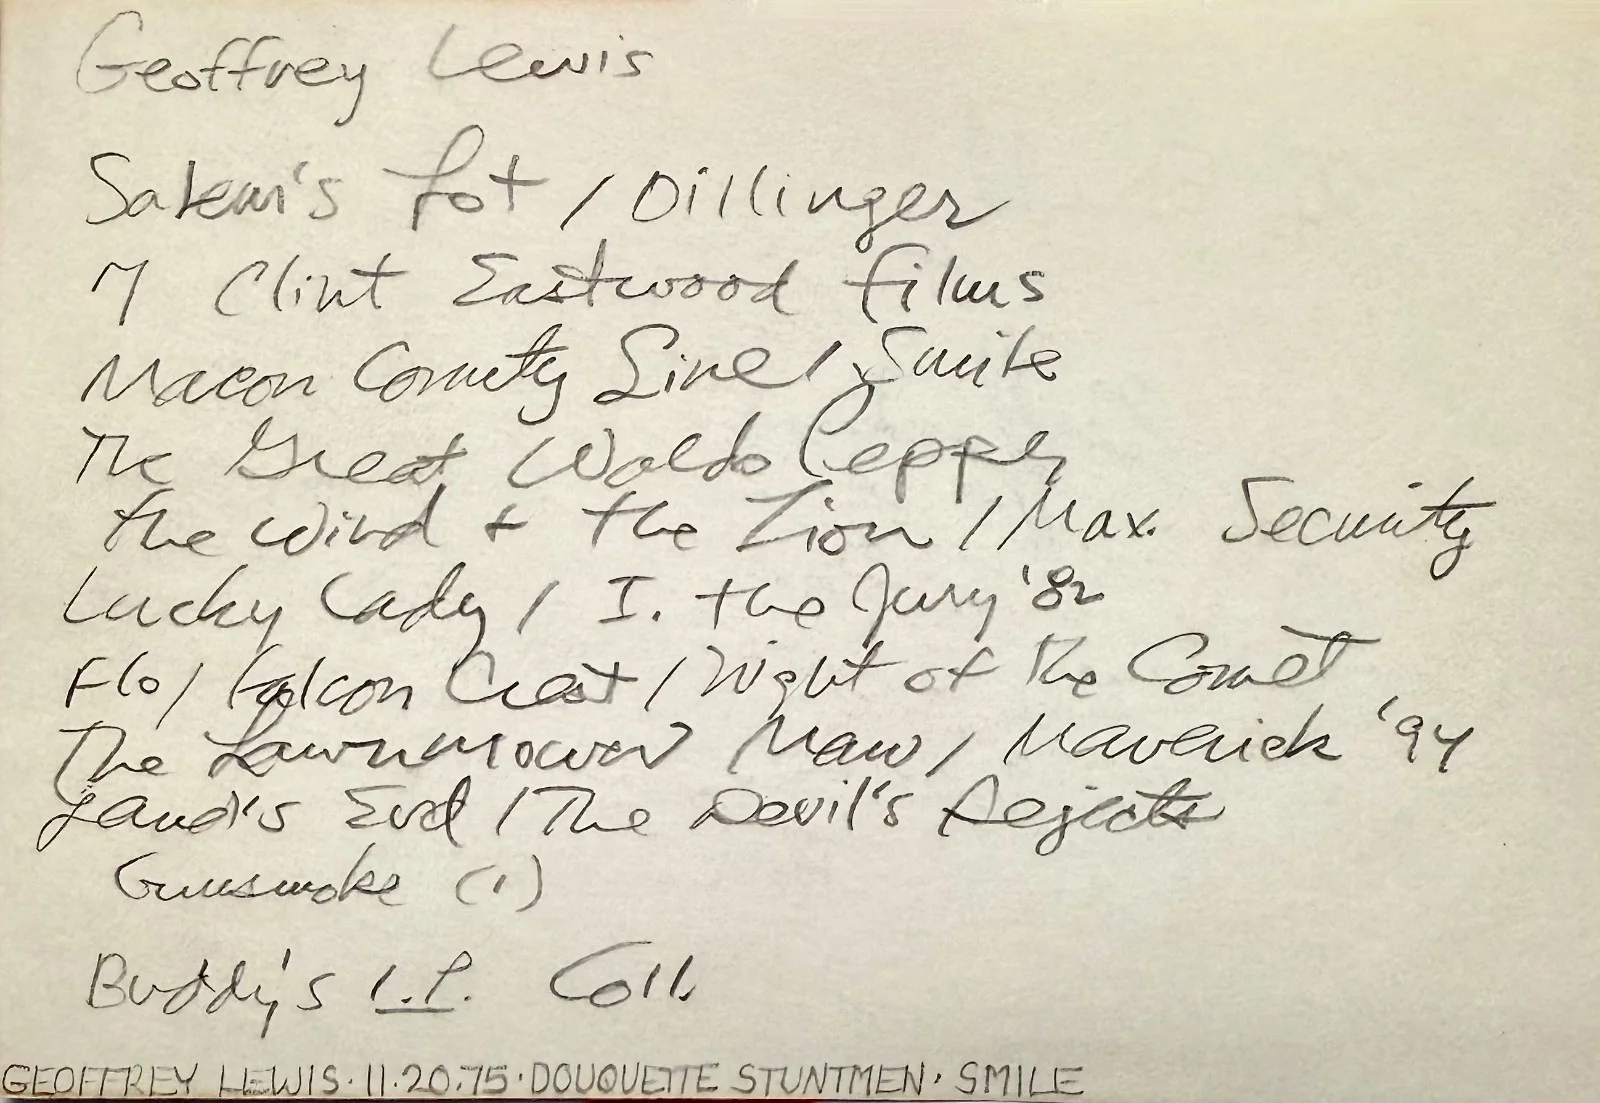 Geoffrey Lewis
Salem's Lot / Dillinger
7 Clint Eastwood films
Macon County Line / Smile
The Great Waldo Pepper
the Wind + the Lion / Max. Security
Lucky Lady / I. the Jury '82
Flo / Falcon Crest / Night of the Comet
The Lawnmower Man / Maverick '94
Land's End / The Devil's Rejects
Gunsmoke (1)
Buddy's I.P. Coll.
GEOFFREY LEWIS · 11·20·75 · DOUQUETTE STUNTMEN · SMILE